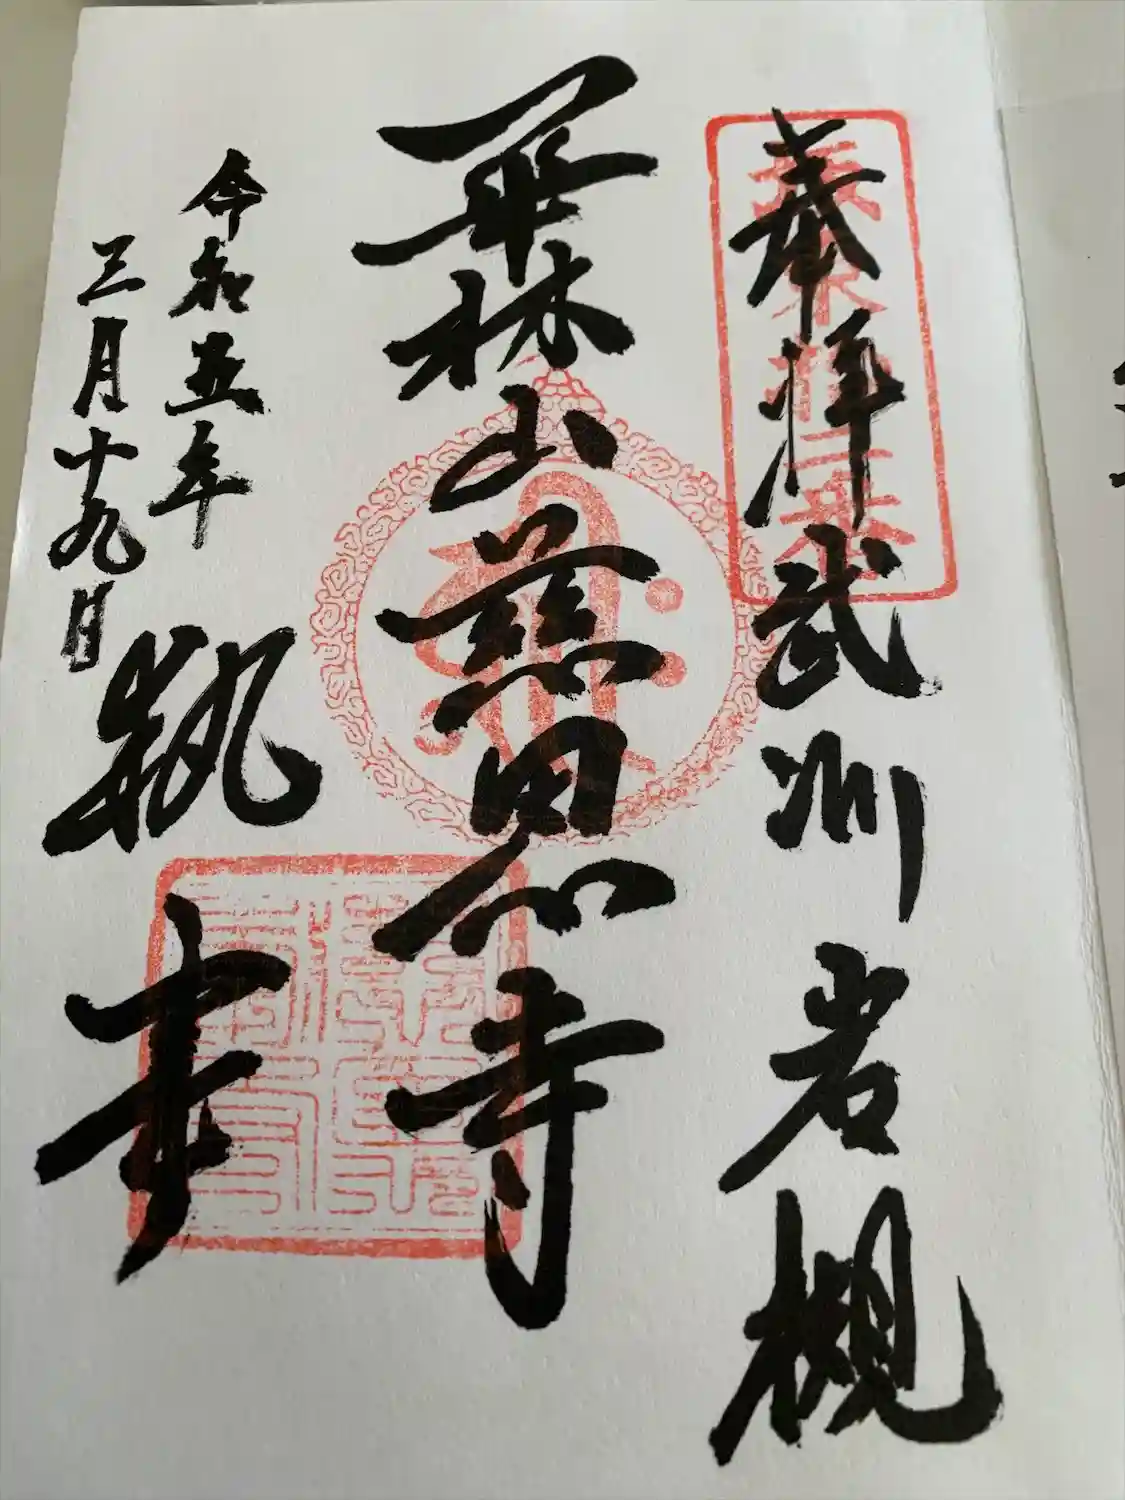 奉拝 武州岩槻
華林山 慈恩寺
令和五年
三月十九日
執事